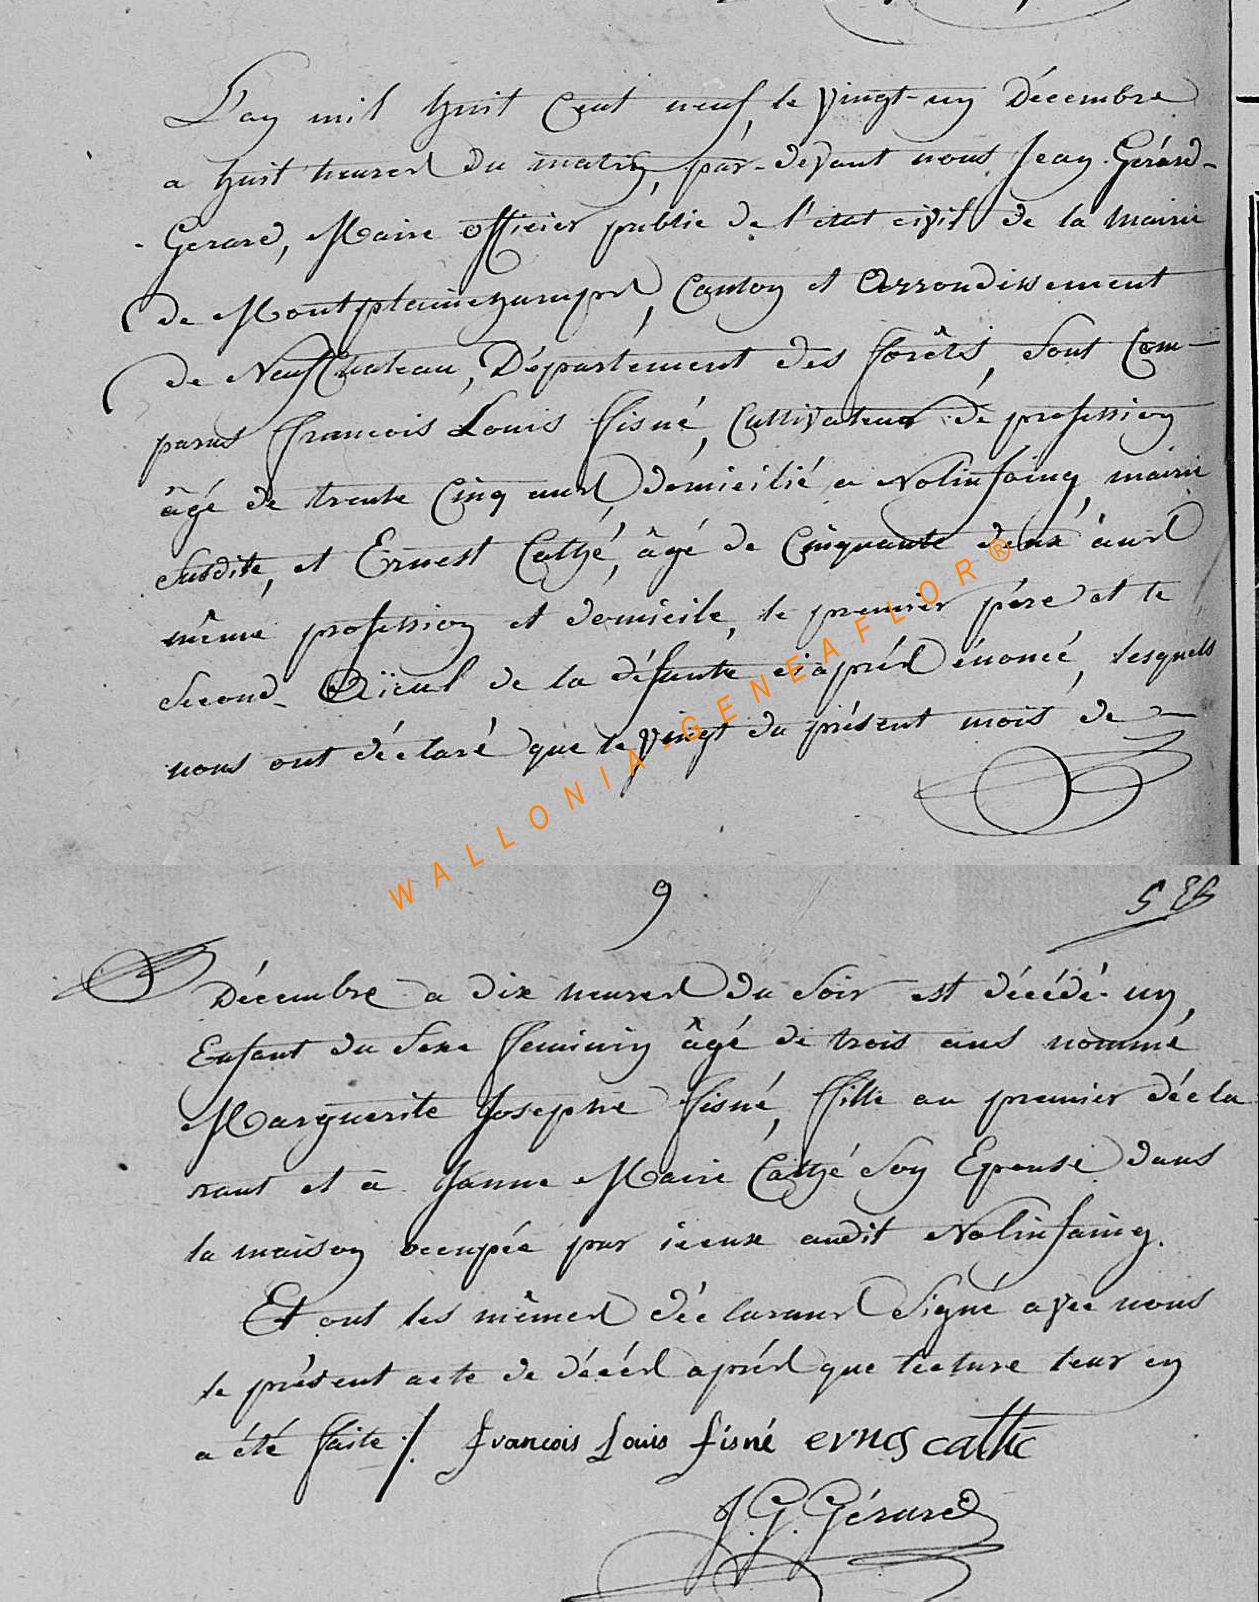 L'an mil huit Cent neuf, le vingt-un Décembre
a huit heures du matin, par-devant nous Jean Gérard-
Gerard, Maire officier public de l'état civil de la mairie
de Montplainchamps, Canton et Arrondissement
de Neufchateau, Département des forêts, sont Com-
parus François Louis fisné, Cultivateur de profession
âgé de trente Cinq ans, domicilié a Nolinfaing, mairie
susdite, et Ernest Cathé, âgé de Cinquante deux ans
même profession et domicile, le premier père et le
second Aïeul de la défunte ci après énoncé, lesquels
nous ont déclaré que le vingt du présent mois de
WALLONIA-GENEAFLOR®
9
Décembre a dix heures du soir est décédé un
Enfant du sexe feminin âgé de trois ans nommé
Marguerite Josephe fisné, fille au premier décla
rant et à Janne Marie Cathé son Epouse dans
la maison occupée par iceux audit Nolinfaing.
Et ont les mêmes déclarans signé avec nous
le présent acte de décès après que lecture leur en
a été faite /. françois Louis fisné ernes cathé
J. G. Gérard